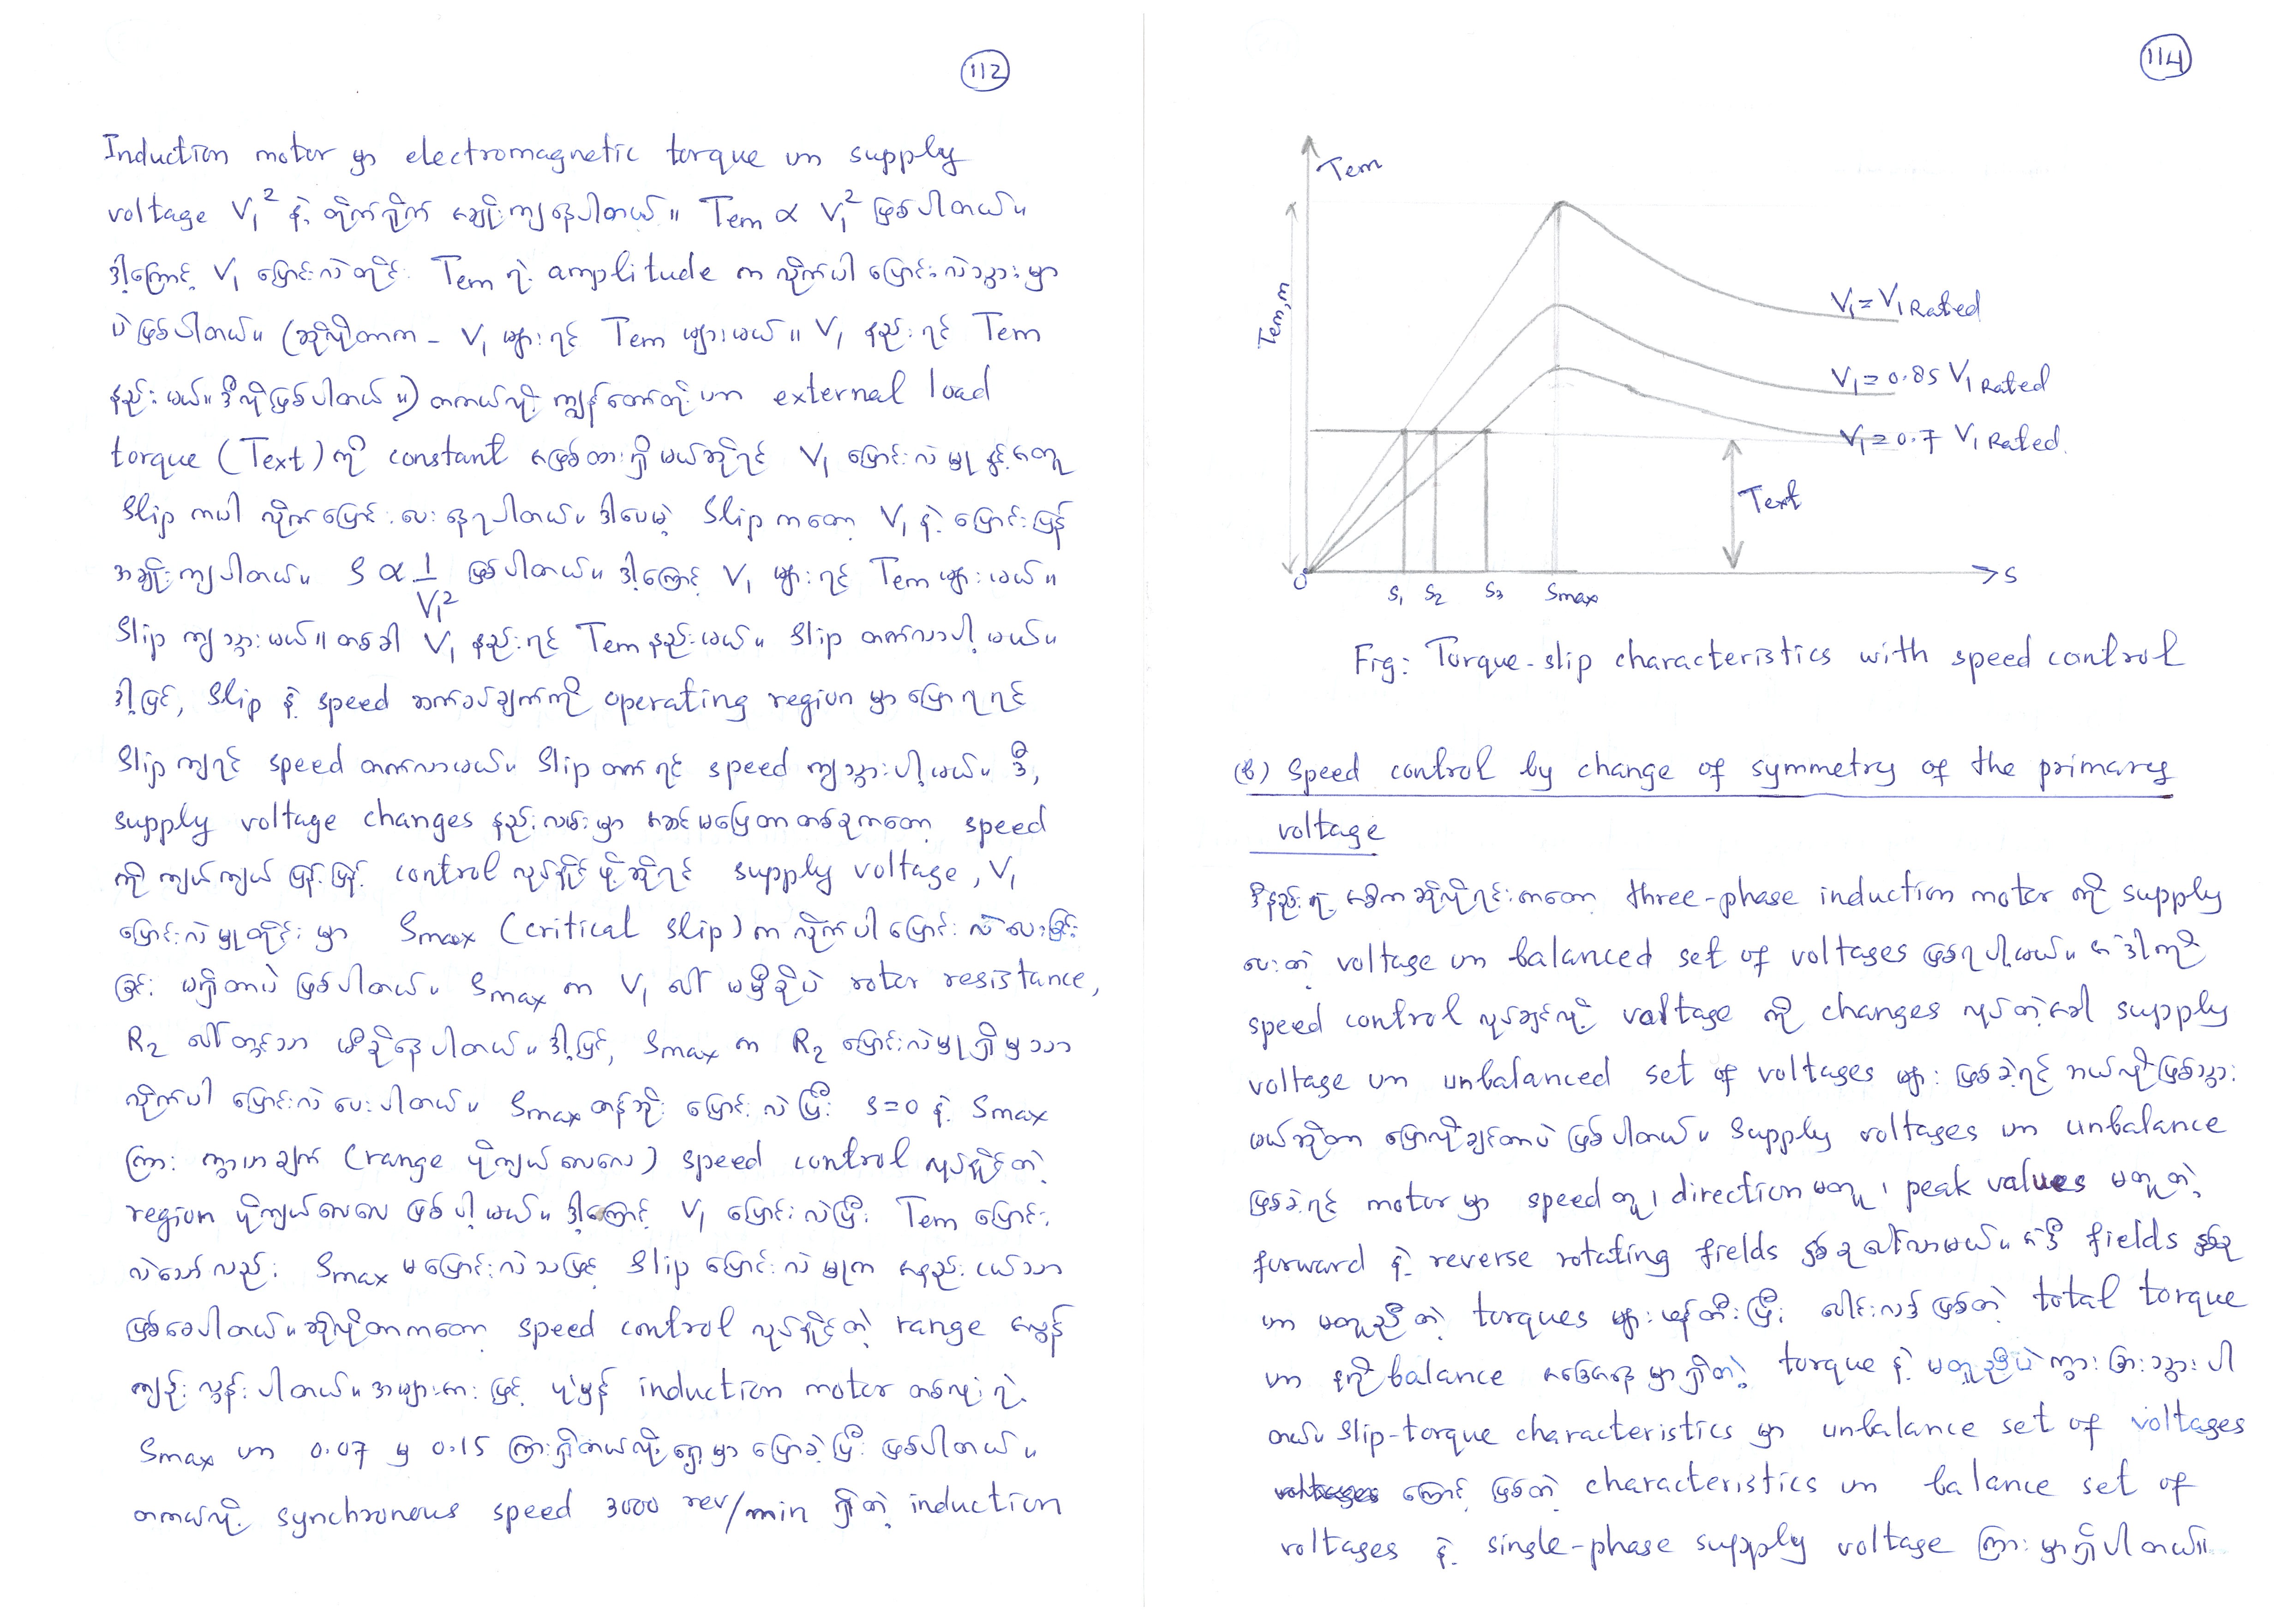 112
Induction motor မှာ electromagnetic torque ဟာ supply
voltage V₁² နဲ့ တိုက်ရိုက် အချိုးကျနေပါတယ်။ Tem ∝ V₁² ဖြစ်ပါတယ်။
ဒါ့ကြောင့် V₁ ပြောင်းလဲတိုင်း Tem ရဲ့ amplitude က လိုက်ပါ ပြောင်းလဲသွားမှာ
ပဲ ဖြစ်ပါတယ်။ (ဆိုလိုတာက - V₁ များရင် Tem များမယ်။ V₁ နည်းရင် Tem
နည်းမယ်။ ဒီလိုဖြစ်ပါတယ်။) တကယ်လို့ ကျွန်တော်တို့ဟာ external load
torque (Text) ကို constant အဖြစ်ထားရှိမယ်ဆိုရင် V₁ ပြောင်းလဲမှုနှင့်အတူ
Slip ကပါ လိုက်ပြောင်းပေးနေရပါတယ်။ ဒါပေမဲ့ Slip ကတော့ V₁ နဲ့ ပြောင်းပြန်
အချိုးကျပါတယ်။ S ∝ 1/V₁² ဖြစ်ပါတယ်။ ဒါ့ကြောင့် V₁ များရင် Tem များမယ်။
Slip ကျသွားမယ်။ တစ်ခါ V₁ နည်းရင် Tem နည်းမယ်။ Slip တက်လာပါ့မယ်။
ဒါ့ပြင်, Slip နဲ့ speed ဆက်စပ်ချက်ကို operating region မှာ ပြောရရင်
Slip ကျရင် speed တက်လာမယ်။ Slip တက်ရင် speed ကျသွားပါ့မယ်။ ဒီ,
supply voltage changes နည်းလမ်းမှာ အဆင်မပြေတာတစ်ခုကတော့ speed
ကို ကျယ်ကျယ်ပြန့်ပြန့် control လုပ်နိုင်ဖို့ဆိုရင် supply voltage, V₁
ပြောင်းလဲမှုတိုင်းမှာ Smax (critical slip) က လိုက်ပါ ပြောင်းလဲပေးခြင်း
ခြင်း မရှိတာပဲ ဖြစ်ပါတယ်။ Smax က V₁ ပေါ် မမှီခိုပဲ rotor resistance,
R₂ ပေါ်တွင်သာ မှီခိုနေပါတယ်။ ဒါ့ပြင်, Smax က R₂ ပြောင်းလဲမှုရှိမှသာ
လိုက်ပါ ပြောင်းလဲပေးပါတယ်။ Smax တန်ဘိုး ပြောင်းလဲပြီး s=0 နဲ့ Smax
ကြား ကွာဟချက် (range ပိုကျယ်လေလေ) speed control လုပ်နိုင်တဲ့
region ပိုကျယ်လေလေ ဖြစ်ပါ့မယ်။ ဒါ့ကြောင့် V₁ ပြောင်းလဲပြီး Tem ပြောင်း
လဲသော်လည်း Smax မပြောင်းလဲသဖြင့် Slip ပြောင်းလဲမှုက အနည်းငယ်သာ
ဖြစ်စေပါတယ်။ ဆိုလိုတာကတော့ speed control လုပ်နိုင်တဲ့ range အလွန်
ကျဉ်းလွန်းပါတယ်။ အများအားဖြင့် ပုံမှန် induction motor တစ်လုံးရဲ့
Smax ဟာ 0.07 မှ 0.15 ကြားရှိတယ်လို့ ရှေ့မှာ ပြောခဲ့ပြီး ဖြစ်ပါတယ်။
တကယ်လို့ synchronous speed 3000 rev/min ရှိတဲ့ induction
114
Tem
Tem,m
V₁=V₁ Rated
V₁=0.85 V₁ Rated
V₁=0.7 V₁ Rated
Text
0 S₁ S₂ S₃ Smax S
Fig: Torque-slip characteristics with speed control
(b) Speed control by change of symmetry of the primary
voltage
ဒီနည်းရဲ့ အဓိကဆိုလိုရင်းကတော့ three-phase induction motor ကို supply
ပေးတဲ့ voltage ဟာ balanced set of voltages ဖြစ်ရပါ့မယ်။ အဲဒါကို
speed control လုပ်ချင်လို့ voltage ကို changes လုပ်တဲ့အခါ supply
voltage ဟာ unbalanced set of voltages များ ဖြစ်ခဲ့ရင် ဘယ်လိုဖြစ်သွား
မယ်ဆိုတာ ပြောလိုချင်တာပဲ ဖြစ်ပါတယ်။ Supply voltages ဟာ unbalance
ဖြစ်ခဲ့ရင် motor မှာ speed တူ၊ direction မတူ၊ peak values မတူတဲ့
forward နဲ့ reverse rotating fields နှစ်ခု ပေါ်လာမယ်။ အဲဒီ fields နှစ်ခု
ဟာ မတူညီတဲ့ torques များ ဖန်တီးပြီး ပေါင်းလဒ်ဖြစ်တဲ့ total torque
ဟာ နဂို balance အခြေအနေမှာရှိတဲ့ torque နဲ့ မတူညီပဲ ကွာခြားသွားပါ
တယ်။ Slip-torque characteristics မှာ unbalance set of voltages
voltages ကြောင့် ဖြစ်တဲ့ characteristics ဟာ balance set of
voltages နဲ့ single-phase supply voltage ကြားမှာရှိပါတယ်။